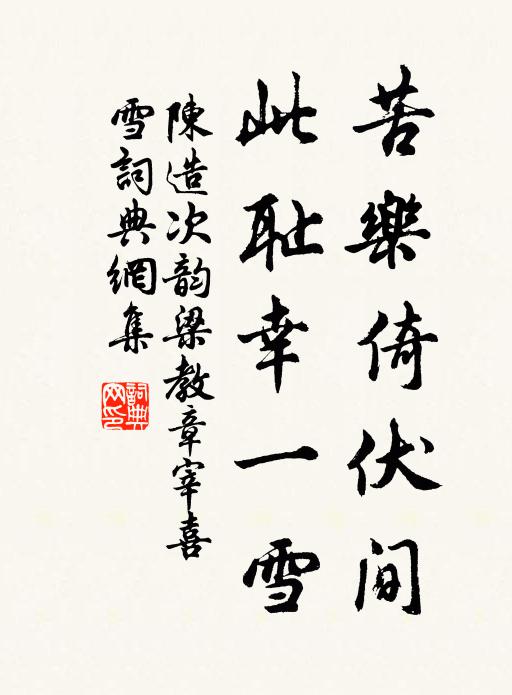 苦樂倚伏间
此耻幸一雪
陳造次韵梁教章宰喜
雪詞典網集
詞典
网印